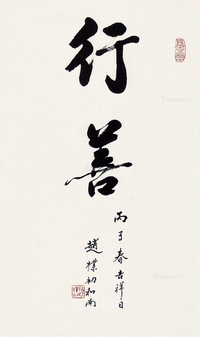 行善
丙子春吉祥日
趙樸初和南